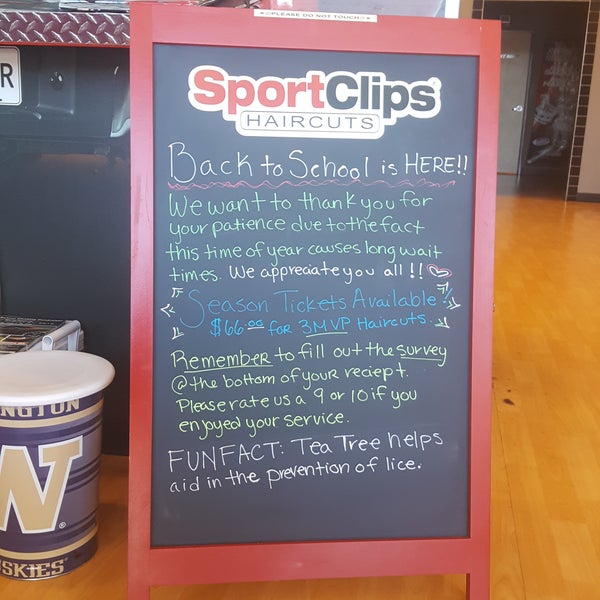 PLEASE DO NOT TOUCH
R
SportClips
HAIRCUTS
Back to School is HERE!!
We want to thank you for
your patience due to the fact
this time of year causes long wait
times. We appreciate you all!!
Season Tickets Available!
$66.00 for 3 MVP Haircuts.
Remember to fill out the survey
@ the bottom of your reciept.
Please rate us a 9 or 10 if you
enjoyed your service.
FUNFACT: Tea Tree helps
aid in the prevention of lice.
NGTON
W
SKIES